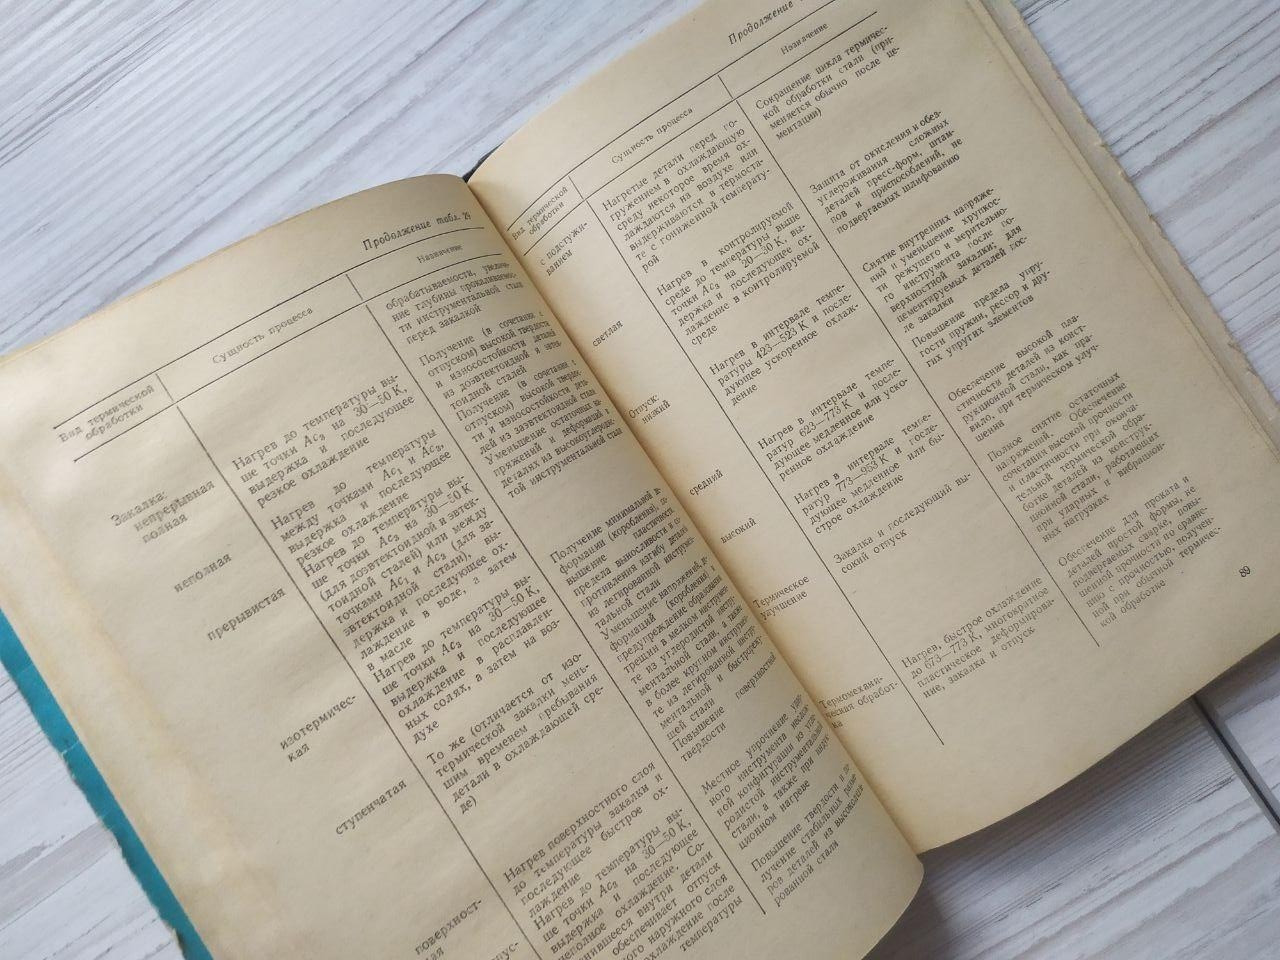 Продолжение табл. 24
Вид термической
обработки
Сущность процесса
Назначение
обрабатываемости, увеличе-
ние глубины прокаливаемос-
ти инструментальной стали
перед закалкой
Закалка:
непрерывная
полная
Нагрев до температуры вы-
ше точки Ac₃ на 30—50 К,
выдержка и последующее
резкое охлаждение
Получение (в сочетании с
отпуском) высокой твердости
и износостойкости деталей
из доэвтектоидной и эвтек-
тоидной сталей
неполная
Нагрев до температуры
между точками Ac₁ и Ac₃,
выдержка и последующее
резкое охлаждение
Получение (в сочетании с
отпуском) высокой твердос-
ти и износостойкости дета-
лей из заэвтектоидной стали
прерывистая
Нагрев до температуры вы-
ше точки Ac₃ на 30—50 К
(для доэвтектоидной и эвтек-
тоидной сталей) или между
точками Ac₁ и Ac₃ (для за-
эвтектоидной стали), вы-
держка и последующее ох-
лаждение в воде, а затем
в масле
Уменьшение остаточных на-
пряжений и деформаций в
деталях из высокоуглеродис-
той инструментальной стали
изотермичес-
кая
Нагрев до температуры вы-
ше точки Ac₃ на 30—50 К,
выдержка и последующее
охлаждение в расплавлен-
ных солях, а затем на воз-
духе
Получение минимальной де-
формации (коробления), по-
вышение пластичности
предела выносливости и со-
противления изгибу деталей
из легированной инструмен-
тальной стали
ступенчатая
То же (отличается от изо-
термической закалки мень-
шим временем пребывания
детали в охлаждающей сре-
де)
Уменьшение напряжений, де-
формаций (коробления) и
предупреждение образования
трещин в мелком инструмен-
те из углеродистой инстру-
ментальной стали, а также
в более крупном инструмен-
те из легированной инстру-
ментальной и быстрорежу-
щей стали
поверхност-
ная
Нагрев поверхностного слоя
до температуры закалки и
последующее быстрое ох-
лаждение
Повышение поверхностной
твердости
Нагрев до температуры вы-
ше точки Ac₃ на 30—50 К,
выдержка и последующее
неполное охлаждение. Со-
хранившееся внутри детали
обеспечивает отпуск
наружного слоя
охлаждение после
температуры
Местное упрочнение удар-
ного инструмента несложной
конфигурации из угле-
родистой инструментальной
стали, а также при индук-
ционном нагреве
Повышение твердости и по-
лучение стабильных разме-
ров деталей из высоколеги-
рованной стали
Продолжение
Вид термической
обработки
Сущность процесса
Назначение
с подстужи-
ванием
Нагретые детали перед по-
гружением в охлаждающую
среду некоторое время ох-
лаждаются на воздухе или
выдерживаются в термоста-
те с пониженной температу-
рой
Сокращение цикла термичес-
кой обработки стали (при-
меняется обычно после це-
ментации)
светлая
Нагрев в контролируемой
среде до температуры выше
точки Ac₃ на 20—30 К, вы-
держка и последующее ох-
лаждение в контролируемой
среде
Защита от окисления и обез-
углероживания сложных
деталей пресс-форм, штам-
пов и приспособлений, не
подвергаемых шлифованию
Отпуск:
низкий
Нагрев в интервале темпе-
ратуры 423—523 К и после-
дующее ускоренное охлаж-
дение
Снятие внутренних напряже-
ний и уменьшение хрупкос-
ти режущего и мерительно-
го инструмента после по-
верхностной закалки; для
цементируемых деталей пос-
ле закалки
средний
Нагрев в интервале темпе-
ратур 623—773 К и после-
дующее медленное или уско-
ренное охлаждение
Повышение предела упру-
гости пружин, рессор и дру-
гих упругих элементов
высокий
Нагрев в интервале темпе-
ратур 773—953 К и после-
дующее медленное или бы-
строе охлаждение
Обеспечение высокой пла-
стичности деталей из конст-
рукционной стали, как пра-
вило, при термическом улуч-
шении
Термическое
улучшение
Закалка и последующий вы-
сокий отпуск
Полное снятие остаточных
напряжений. Обеспечение
сочетания высокой прочности
и пластичности при оконча-
тельной термической обра-
ботке деталей из конструк-
ционной стали, работающих
при ударных и вибрацион-
ных нагрузках
Термомехани-
ческая обработ-
ка
Нагрев, быстрое охлаждение
до 673—773 К, многократное
пластическое деформирова-
ние, закалка и отпуск
Обеспечение для проката и
деталей простой формы, не
подвергаемых сварке, повы-
шенной прочности по сравне-
нию с прочностью, получен-
ной при обычной термичес-
кой обработке
89